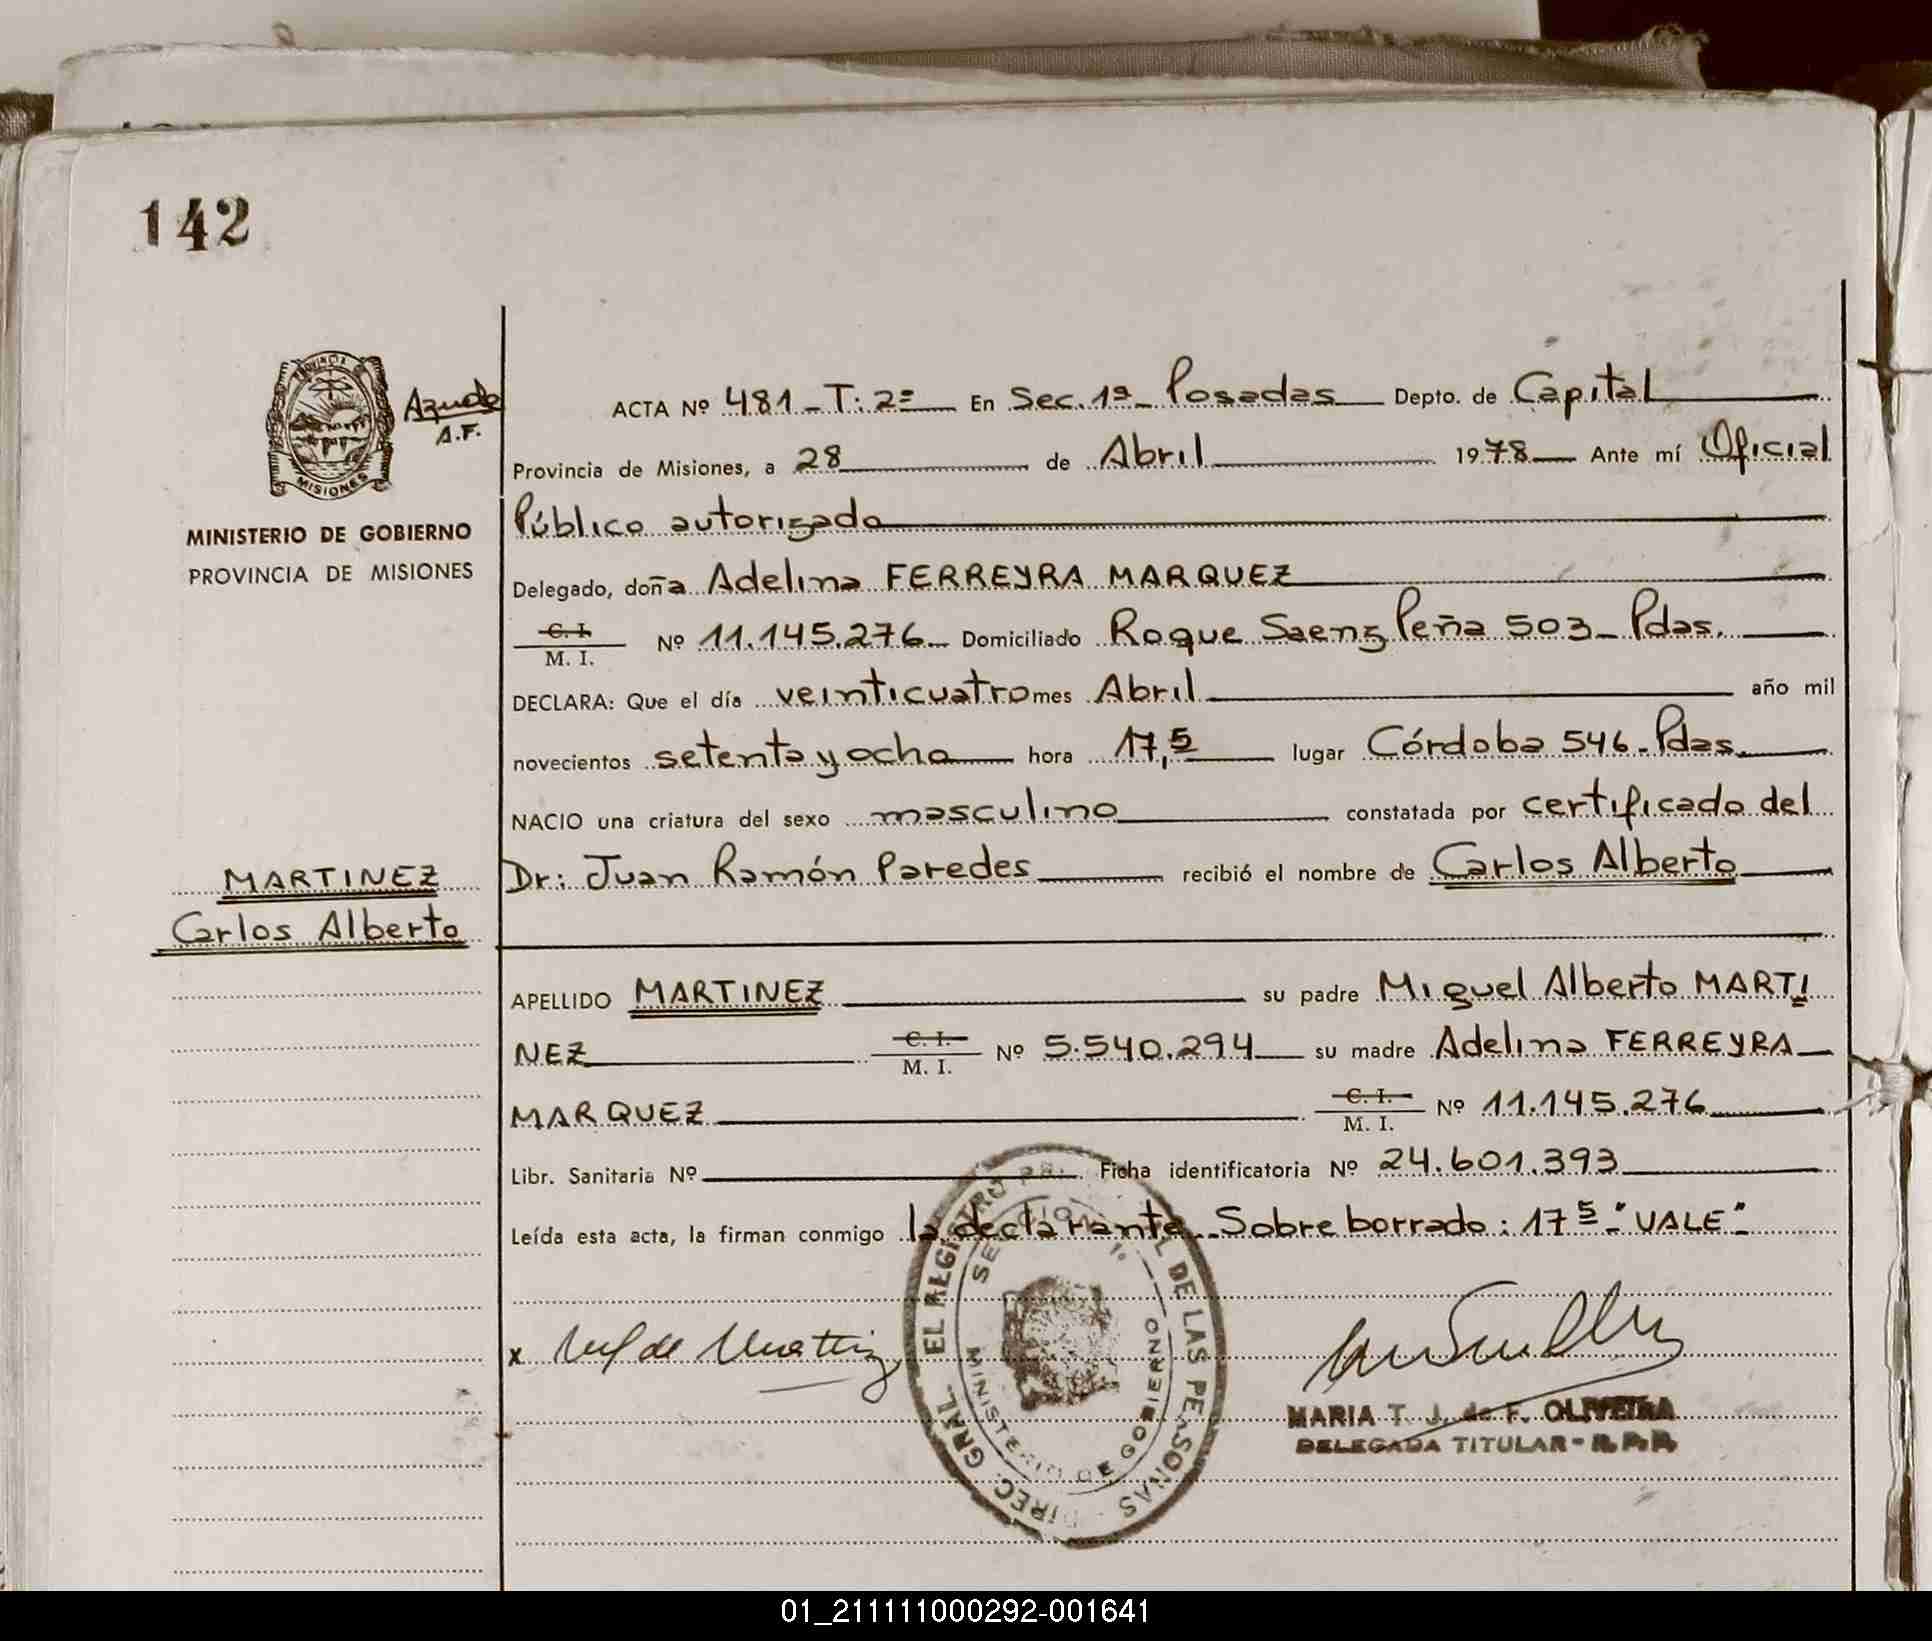 142
PROVINCIA
MISIONES
A.F.
MINISTERIO DE GOBIERNO
PROVINCIA DE MISIONES
ACTA Nº 481_T:2º En Sec.1ª_Posadas Depto. de Capital
Provincia de Misiones, a 28 de Abril 1978 Ante mí Oficial
Público autorizado
Delegado, doña Adelina FERREYRA MARQUEZ
C. I. M. I. Nº 11.145.276_ Domiciliado Roque Saenz Peña 503_Pdas.
DECLARA: Que el día veinticuatro mes Abril año mil
novecientos setenta y ocho hora 17,5 lugar Córdoba 546_Pdas.
NACIO una criatura del sexo masculino constatada por certificado del
MARTINEZ Dr: Juan Ramón Paredes recibió el nombre de Carlos Alberto
Carlos Alberto
APELLIDO MARTINEZ su padre Miguel Alberto MARTI
NEZ C. I. M. I. Nº 5.540.294 su madre Adelina FERREYRA
MARQUEZ C. I. M. I. Nº 11.145.276
Libr. Sanitaria Nº Ficha identificatoria Nº 24.601.393
Leída esta acta, la firman conmigo la declarante_Sobre borrado: 17 5_"VALE"_
x
MARIA T. J. de F. OLIVEIRA
DELEGADA TITULAR - R.P.P.
DE LAS PERSONAS
DIREC. GRAL.
MINISTERIO DE GOBIERNO
01_211111000292-001641